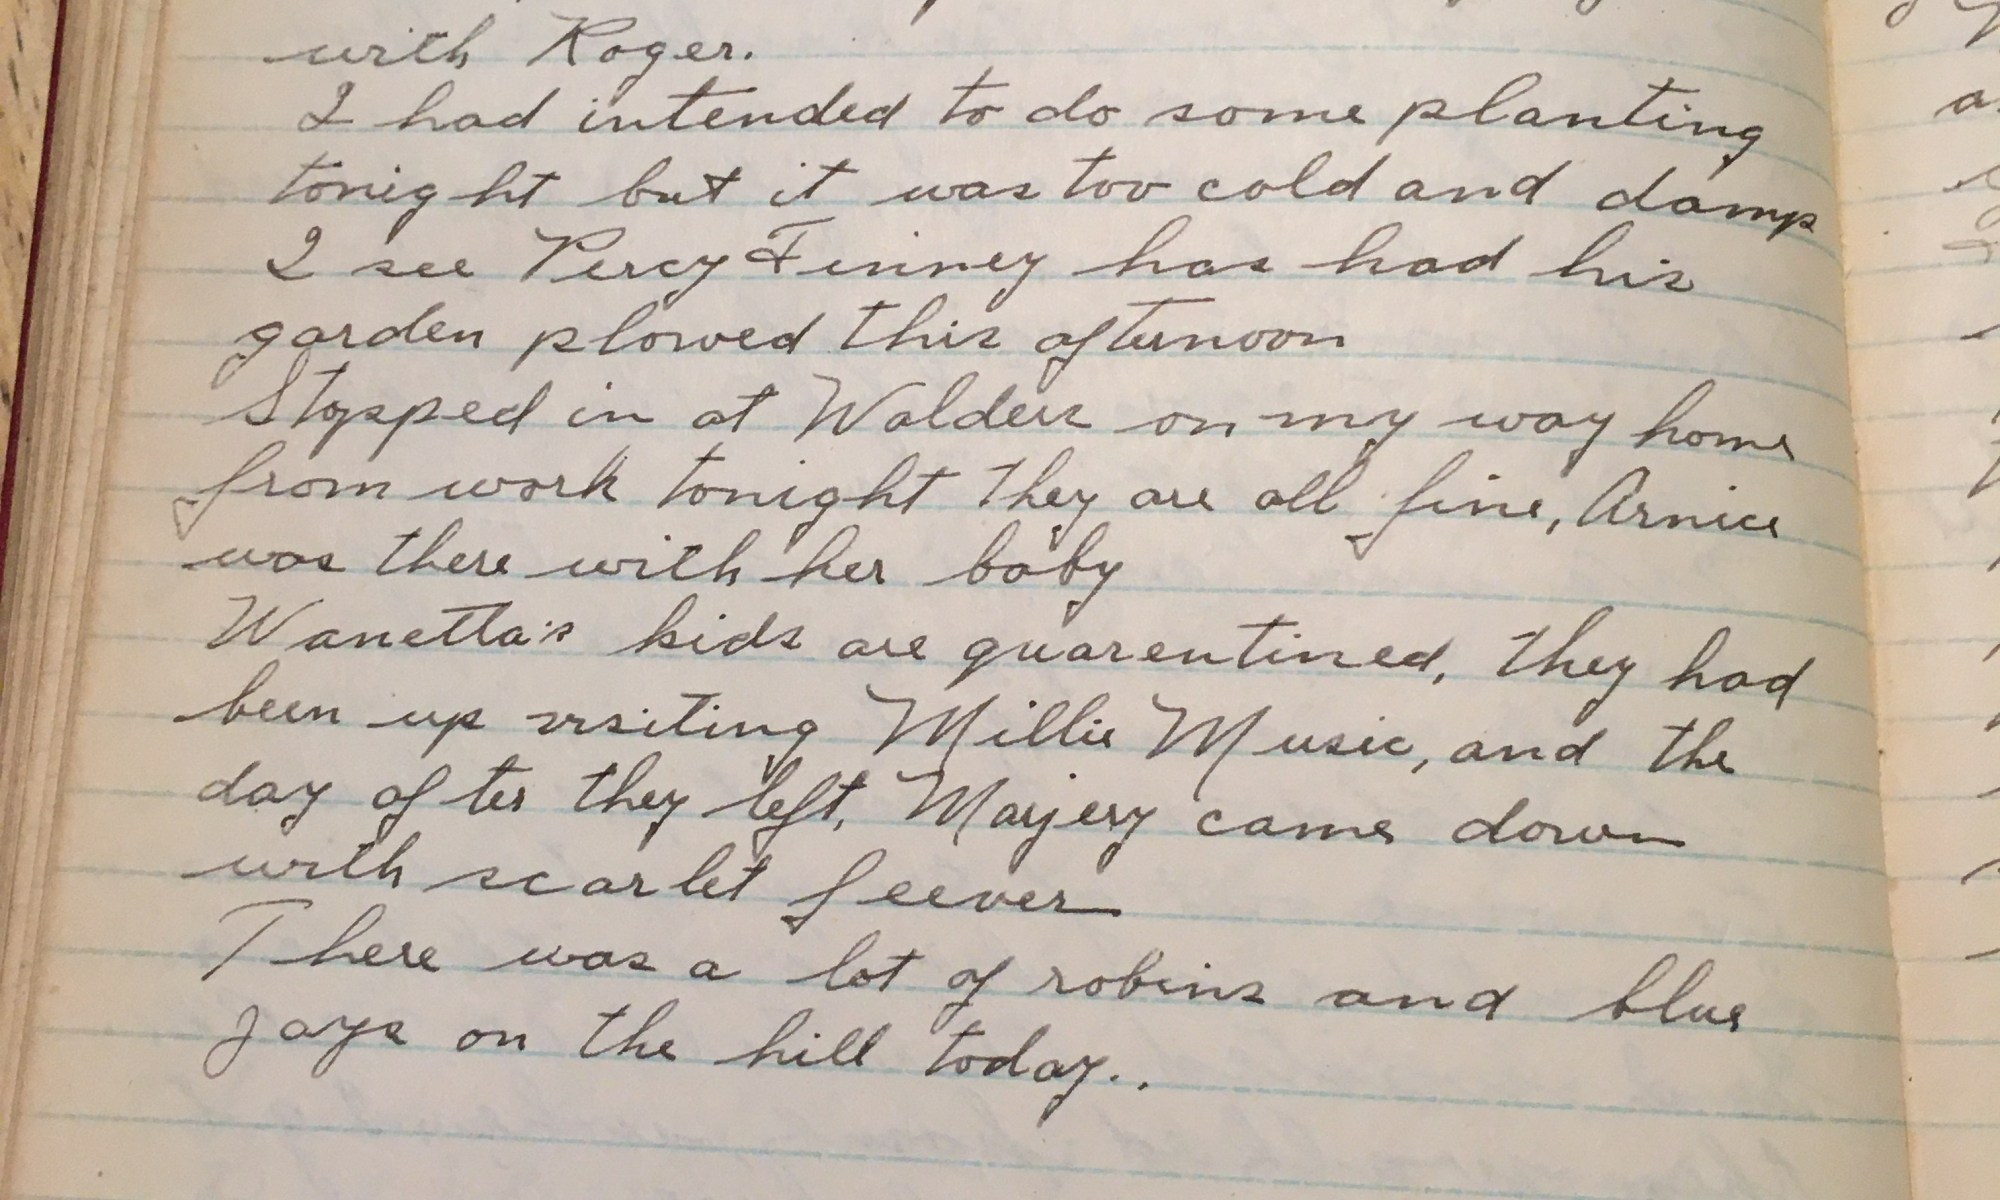 with Roger.
I had intended to do some planting
tonight but it was too cold and damp
I see Percy Finney has had his
garden plowed this afternoon
Stopped in at Walders on my way home
from work tonight They are all fine, Arnice
was there with her baby
Wanetta's kids are quarentined, They had
been up visiting Millie Music, and the
day after they left, Marjery came down
with scarlet feever
There was a lot of robins and blue
jays on the hill today..